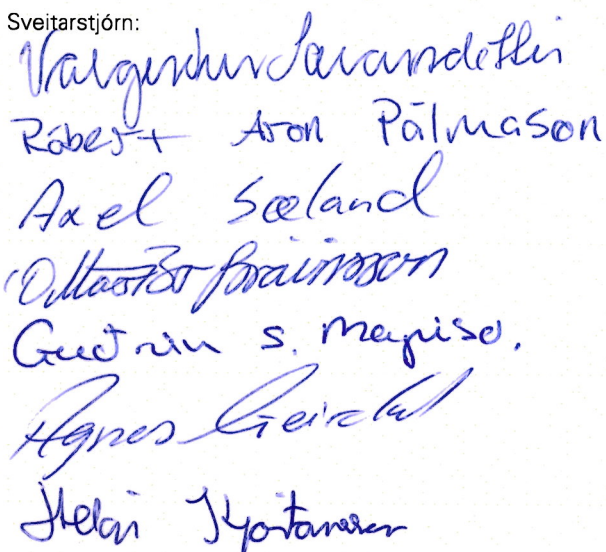 Sveitarstjórn:
Valgerður Sævarsdóttir
Róbert Aron Pálmason
Axel Sæland
Óttar Bragi Þráinsson
Guðrún S. Magnúsd.
Agnes Geirdal
Helgi Kjartansson